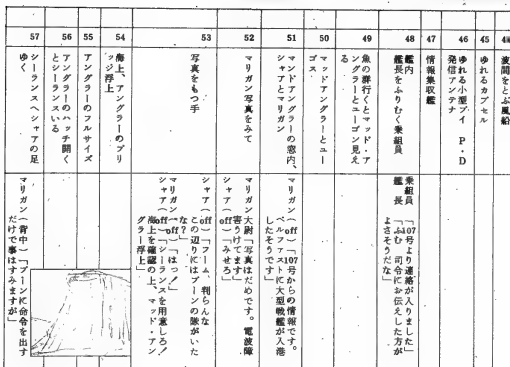 波間をとぶ風船
45
ゆれるカプセル
46
ゆれる小型ブイ P・D
発信アンテナ
47
情報集収艦
48
艦内
艦長をふりむく乗組員
乗組員「107号より連絡が入りました」
艦長「ふむ 司令にお伝えした方が
よさそうだな」
49
魚の群行くとマッド・ア
ングラーとユーゴン見え
る
50
マッドアングラーとユー
ゴス
51
マンドアングラーの窓内、
シャアとマリガン
マリガン(off)「107号からの情報です。
ベルファストに大型戦艦が入港
したそうです」
52
マリガン写真をみて
マリガン大尉「写真はだめです。電波障
害うけてます」
シャア(off)「みせろ」
53
写真をもつ手
シャア(off)「フーム、判らんな
この辺りにはブーンの隊がいた
な?」
マリガン(off)「はっ!」
シャア(off)「シーランスを用意しろ!
海上を確認の上、マッド・アン
グラー浮上」
54
海上、アングラーのブリ
ッジ浮上
55
アングラーのフルサイズ
56
アングラーのハッチ開く
とシーランスいる
57
シーランスへシャアの足
ゆく
マリガン(背中)「ブーンに命令を出す
だけで事はすみますが」